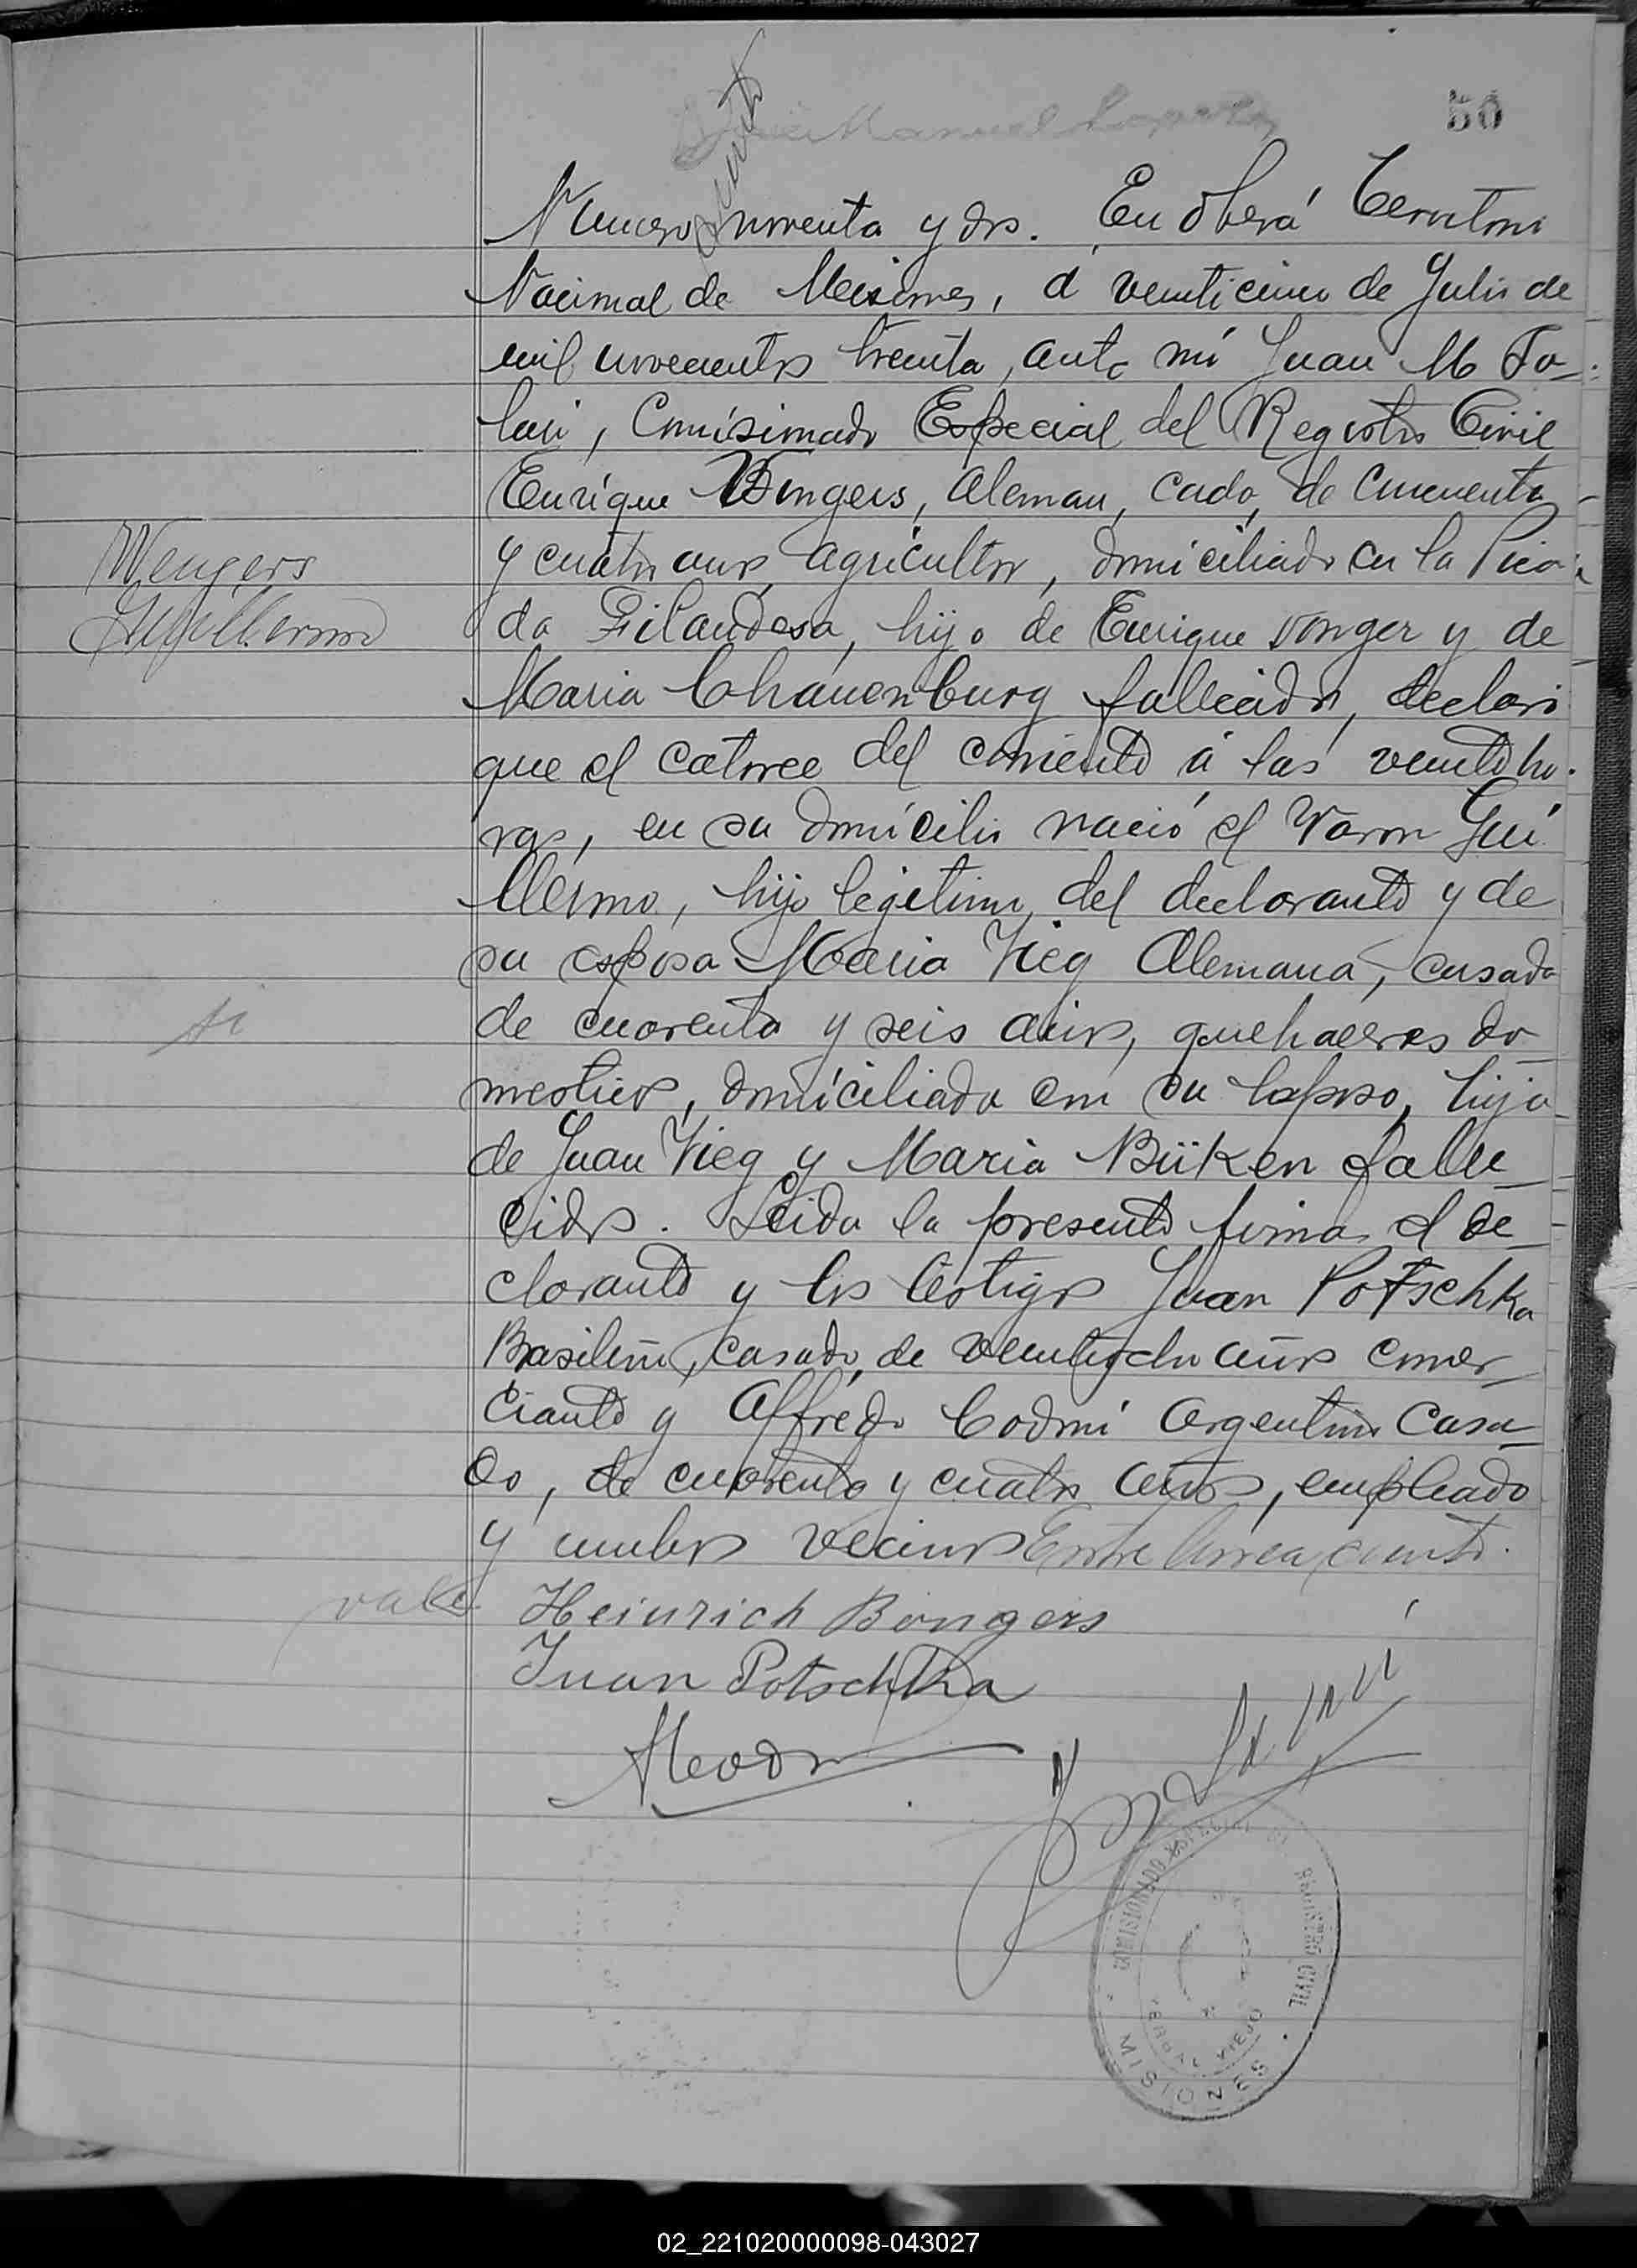 50
ciento
Numero noventa y dos. En Oberá Territorio
Nacional de Misiones, á veinticinco de Julio de
mil novecientos treinta, ante mí Juan M
Comisionado Especial del Registro Civil
Enrique Bongers, Aleman, cado, de cincuenta
y cuatro años, agricultor, domiciliado en la Pica
Wengers
Guillermo
da Filandesa, hijo de Enrique Vonger y de
Maria Chauenburg fallecidos, declaró
que el catorce del corriente á las veinte ho-
ras, en su domicilio nació el varon Gui
llermo, hijo legitimo, del declarante y de
su esposa Maria Vieg Alemana, casada
de cuarenta y seis años, quehaceres do
si
mesticos, domiciliada con su esposo, hija
de Juan Vieg y Maria Büken falle
cidos. Leida la presente firma el de
clarante y los testigos Juan Potschka
Brasileño, casado, de veintiocho años comer
ciante y Alfredo Codmi Argentino Casa
do, de cuarenta y cuatro años, empleado
y ambos vecinos Entre linea, ciento.
vale
Heinrich Bongers
Juan Potschka
COMISIONADO ESPECIAL REGISTRO CIVIL
YERBAL VIEJO
MISIONES
02_221020000098-043027